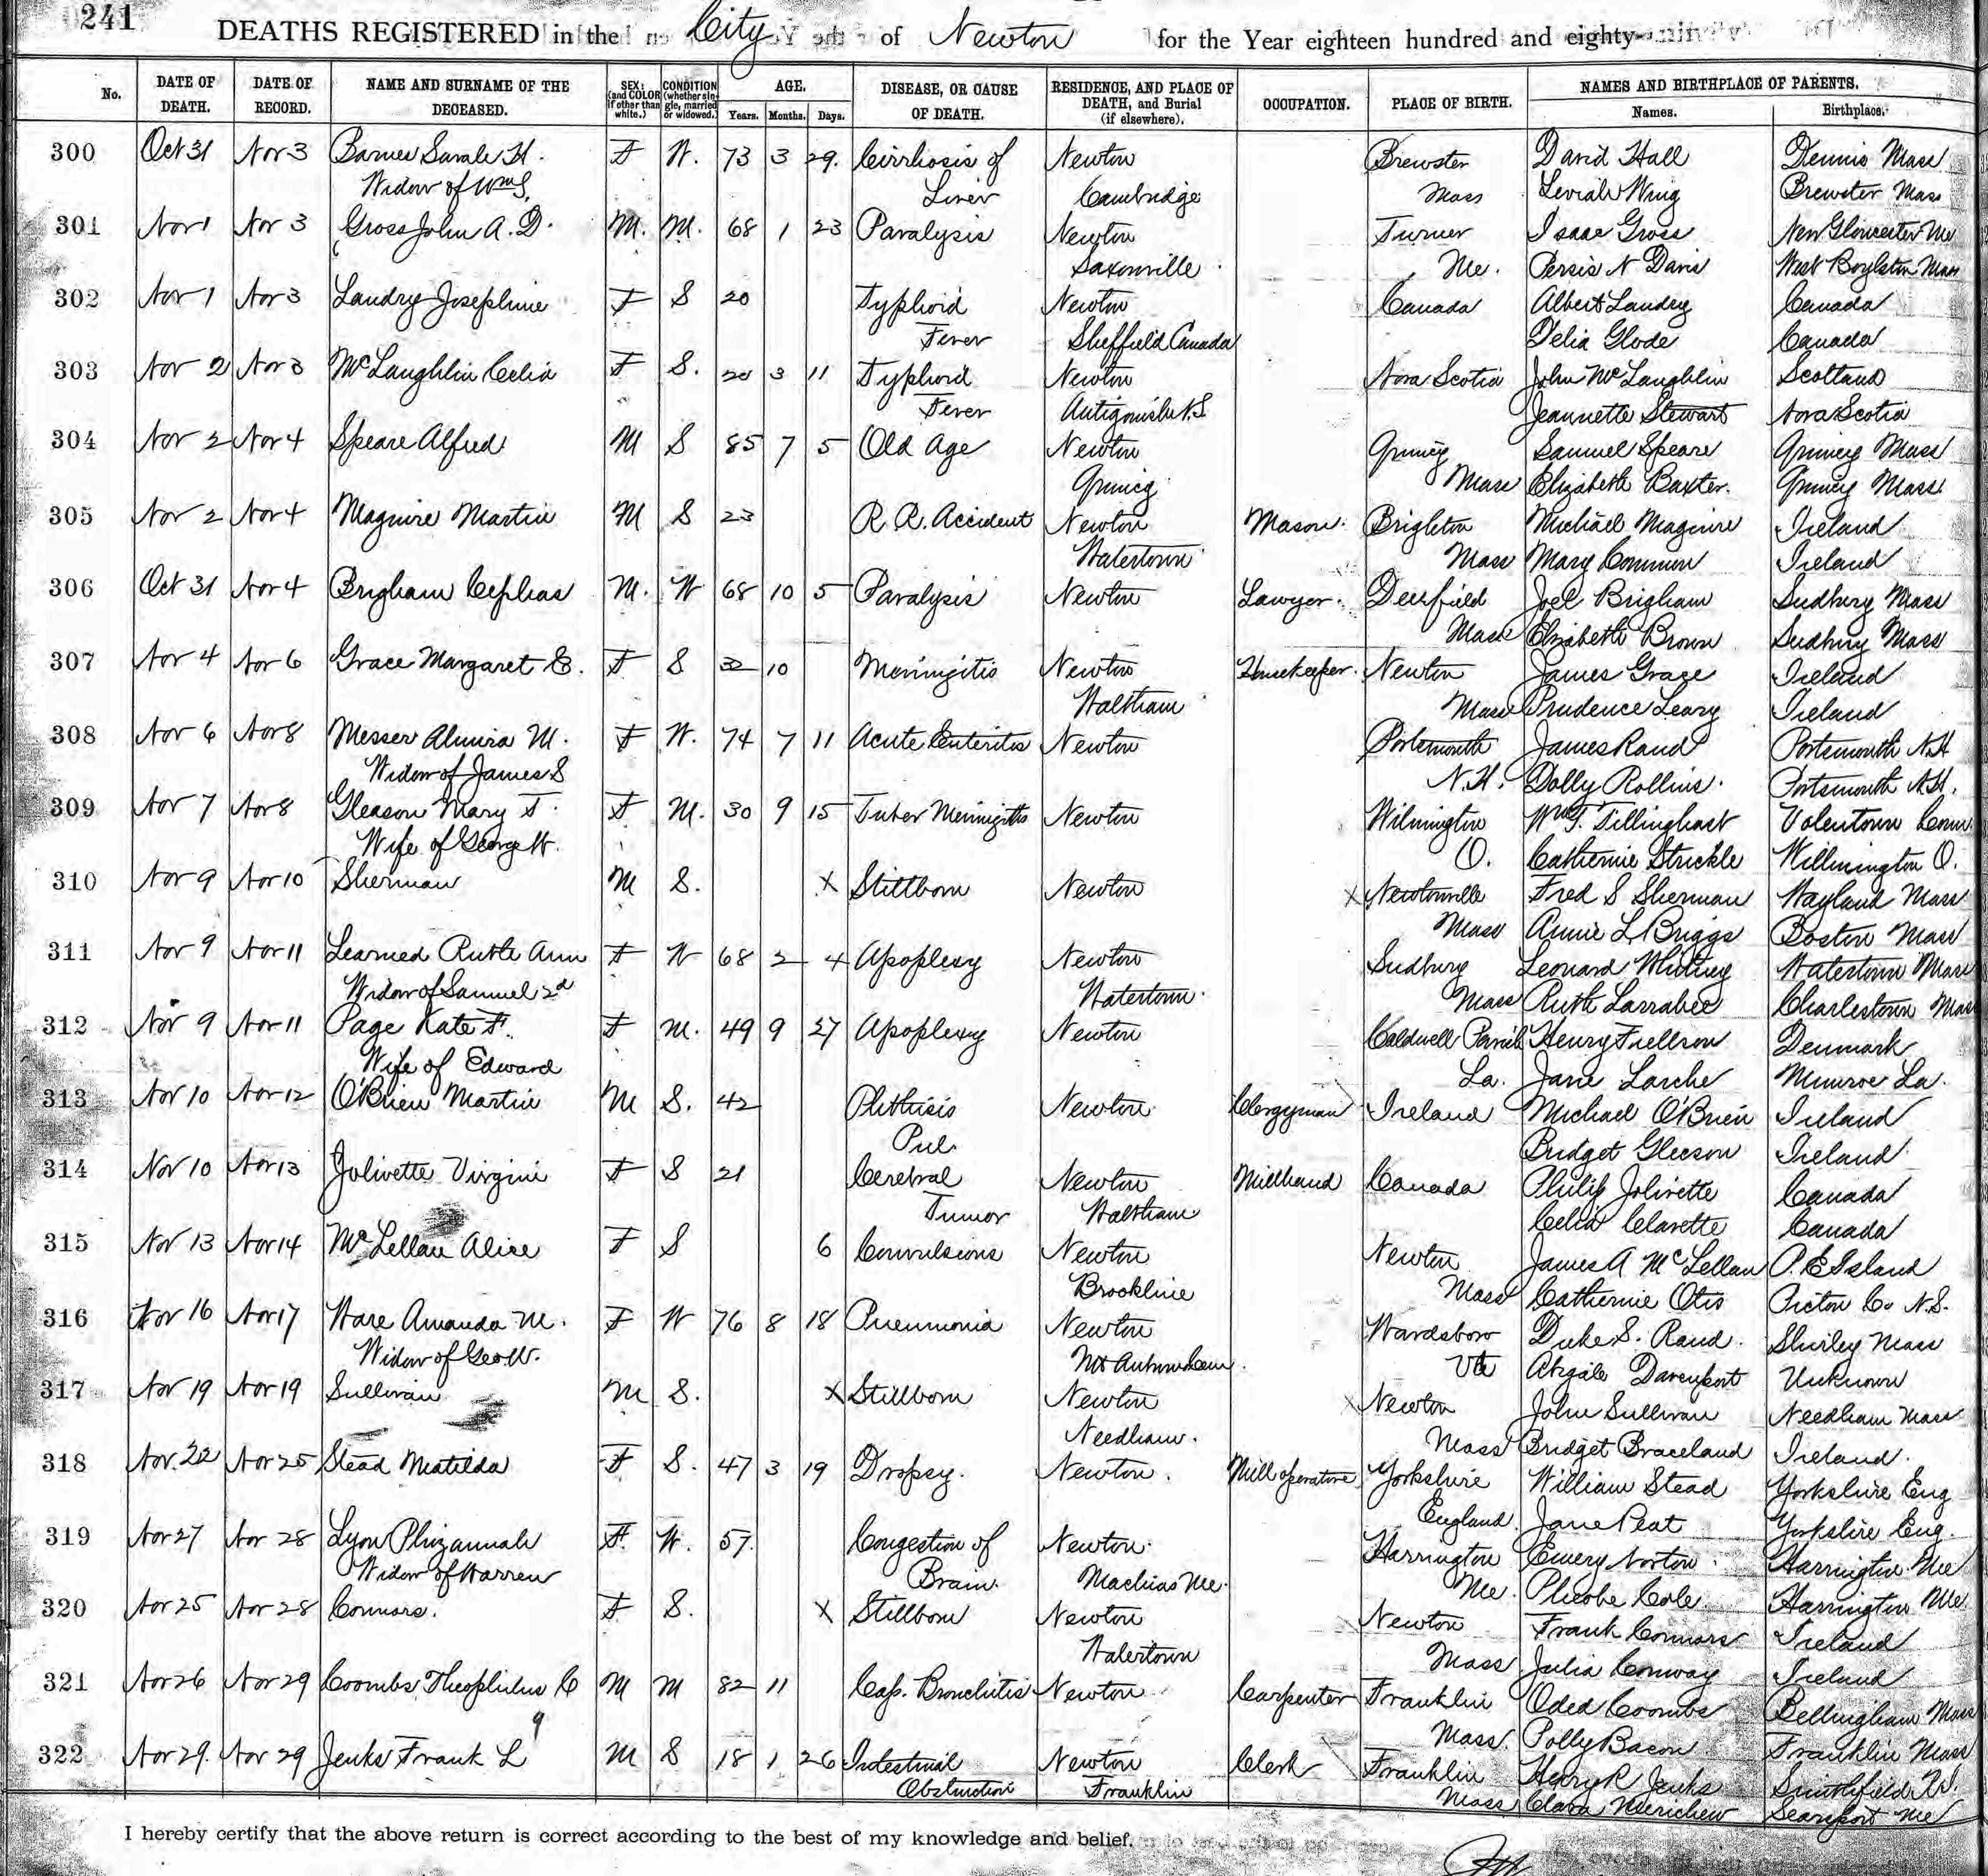 241
DEATHS REGISTERED in the City of Newton for the Year eighteen hundred and eighty-
No. DATE OF DEATH. DATE OF RECORD. NAME AND SURNAME OF THE DECEASED. SEX: (and COLOR if other than white.) CONDITION (whether single, married or widowed.) AGE. Years. Months. Days. DISEASE, OR CAUSE OF DEATH. RESIDENCE, AND PLACE OF DEATH, and Burial (if elsewhere). OCCUPATION. PLACE OF BIRTH. NAMES AND BIRTHPLACE OF PARENTS. Names. Birthplace.
300 Oct 31 Nov 3 Barnes Sarah H. F W. 73 3 29. Cirrhosis of Newton Brewster David Hall Dennis Mass
Widow of Wm S. Liver Cambridge Mass Wing Brewster Mass
301 Nov 1 Nov 3 Gross John A. D. M. M. 68 1 23 Paralysis Newton Turner Isaac Gross New Gloucester Me
Saxonville Me. Persis N Davis West Boylston Mass
302 Nov 1 Nov 3 Landry Josephine F S 20 Typhoid Newton Canada Albert Landry Canada
Fever Sheffield Canada Delia Glode Canada
303 Nov 2 Nov 3 McLaughlin Celia F S. 20 3 11 Typhoid Newton Nova Scotia John McLaughlin Scotland
Fever Antigonishe N.S Jeannette Stewart Nova Scotia
304 Nov 2 Nov 4 Speare Alfred M S 85 7 5 Old Age Newton Quincy Samuel Speare Quincy Mass
Quincy Mass Elizabeth Baxter. Quincy Mass.
305 Nov 2 Nov 4 Maguire Martin M S 23 R. R. Accident Newton Mason Brighton Michael Maguire Ireland
Watertown Mass Mary Common Ireland
306 Oct 31 Nov 4 Brigham Cephas M. W 68 10 5 Paralysis Newton Lawyer Deerfield Joel Brigham Sudbury Mass
Mass Elizabeth Brown Sudbury Mass
307 Nov 4 Nov 6 Grace Margaret E. F S 32 10 Meningitis Newton Housekeeper Newton James Grace Ireland
Waltham Mass Prudence Leary Ireland
308 Nov 6 Nov 8 Messer Almira M. F W. 74 7 11 Acute Enteritis Newton Portsmouth James Rand Portsmouth N.H
Widow of James S N.H. Dolly Rollins. Portsmouth N.H.
309 Nov 7 Nov 8 Gleason Mary T. F M. 30 9 15 Tuber Meningitis Newton Wilmington Wm T. Tillinghast Volentown Conn
Wife of George W. O. Catherine Strickle Willmington O.
310 Nov 9 Nov 10 Sherman M S. X Stillborn Newton X Newtonville Fred S Sherman Wayland Mass
Mass Annie L Briggs Boston Mass
311 Nov 9 Nov 11 Learned Ruth Ann F W 68 2 4 Apoplexy Newton Sudbury Leonard Whitney Watertown Mass
Widow of Samuel 2d Watertown Mass Ruth Larrabee Charlestown Mass
312 Nov 9 Nov 11 Page Kate F. F M. 49 9 27 Apoplexy Newton Caldwell Parish Henry Denmark
Wife of Edward La. Jane Larche Munroe La.
313 Nov 10 Nov 12 O'Brien Martin M S. 42 Phthisis Newton Clergyman Ireland Michael O'Brien Ireland
Pul. Bridget Gleeson Ireland
314 Nov 10 Nov 13 Jolivette Virgini F S 21 Cerebral Newton Millhand Canada Philip Jolivette Canada
Tumor Waltham Celia Clavette Canada
315 Nov 13 Nov 14 McLellan Alice F S 6 Convulsions Newton Newton James A McLellan P. E Island
Brookline Mass Catherine Otis Picton Co N.S.
316 Nov 16 Nov 17 Ware Amanda M. F W 76 8 18 Pneumonia Newton Wardsboro Duke S. Rand. Shirley Mass
Widow of Geo W. Mt Auburn Cem Vt Abigale Davenport Unknown
317 Nov 19 Nov 19 Sullivan M S. X Stillborn Newton X Newton John Sullivan Needham Mass
Needham. Mass Bridget Braceland Ireland.
318 Nov. 22 Nov 25 Stead Matilda F S. 47 3 19 Dropsy. Newton. Mill operative Yorkshire William Stead Yorkshire Eng
England. Jane Peat Yorkshire Eng.
319 Nov 27 Nov 28 Lyon F. W. 57. Congestion of Newton. Harrington Emery Norton Harrington Me
Widow of Warren Brain. Machias Me. Me. Pheobe Cole. Harrington Me.
320 Nov 25 Nov 28 Connors. F S. X Stillborn Newton Newton Frank Connors Ireland
Watertown Mass. Julia Conway Ireland
321 Nov 26 Nov 29 Coombs Theophilus C M M 82 11 Cap. Bronchitis Newton Carpenter Franklin Oded Coombs Bellingham Mass
9 Mass. Polly Bacon Franklin Mass
322 Nov 29. Nov 29 Jenks Frank L M S 18 1 26 Intestinal Newton Clerk Franklin Henry R Jenks Smithfield R.I.
Obstruction Franklin Mass Clara Searsport Me
I hereby certify that the above return is correct according to the best of my knowledge and belief.